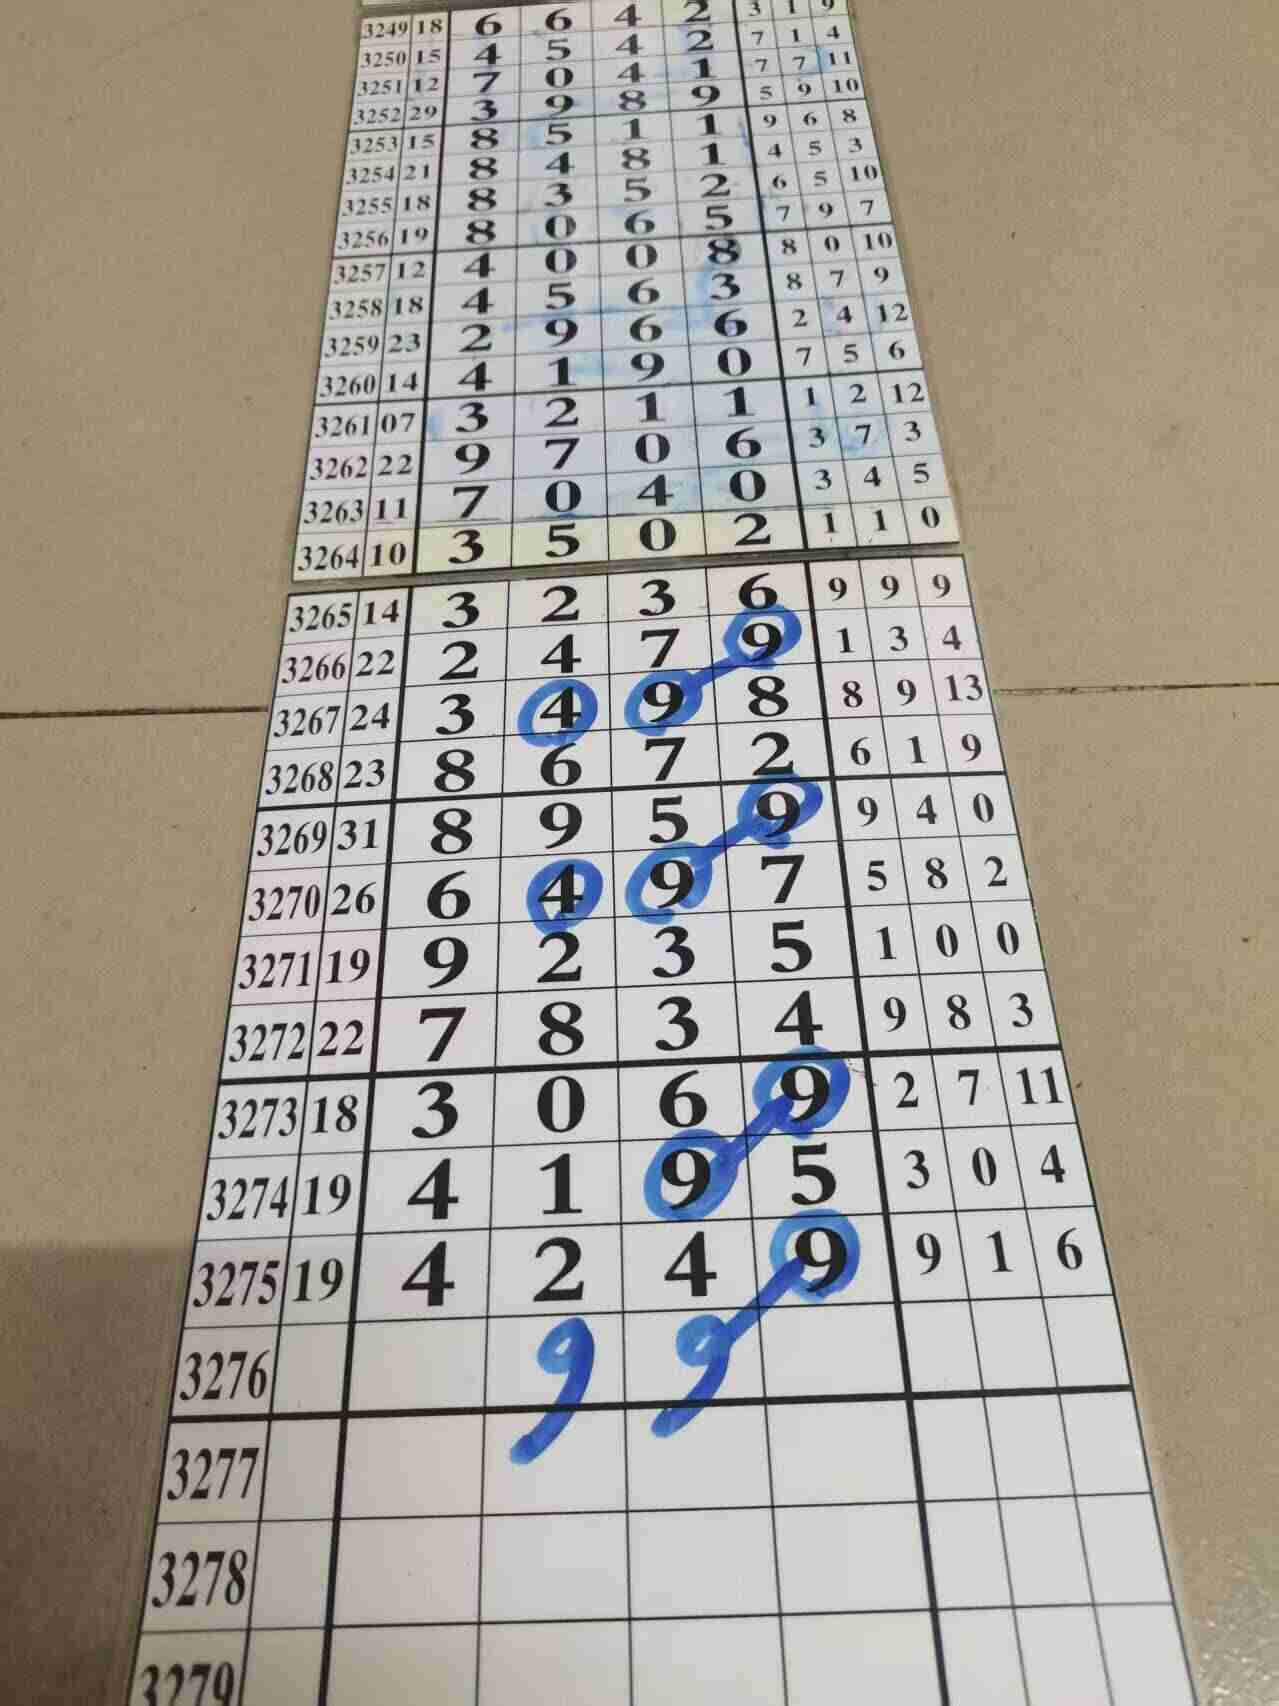 3249 18 6 6 4 2 3 1 9
3250 15 4 5 4 2 7 1 4
3251 12 7 0 4 1 7 7 11
3252 29 3 9 8 9 5 9 10
3253 15 8 5 1 1 9 6 8
3254 21 8 4 8 1 4 5 3
3255 18 8 3 5 2 6 5 10
3256 19 8 0 6 5 7 9 7
3257 12 4 0 0 8 8 0 10
3258 18 4 5 6 3 8 7 9
3259 23 2 9 6 6 2 4 12
3260 14 4 1 9 0 7 5 6
3261 07 3 2 1 1 1 2 12
3262 22 9 7 0 6 3 7 3
3263 11 7 0 4 0 3 4 5
3264 10 3 5 0 2 1 1 0
3265 14 3 2 3 6 9 9 9
3266 22 2 4 7 9 1 3 4
3267 24 3 4 9 8 8 9 13
3268 23 8 6 7 2 6 1 9
3269 31 8 9 5 9 9 4 0
3270 26 6 4 9 7 5 8 2
3271 19 9 2 3 5 1 0 0
3272 22 7 8 3 4 9 8 3
3273 18 3 0 6 9 2 7 11
3274 19 4 1 9 5 3 0 4
3275 19 4 2 4 9 9 1 6
3276 9 9
3277
3278
3279